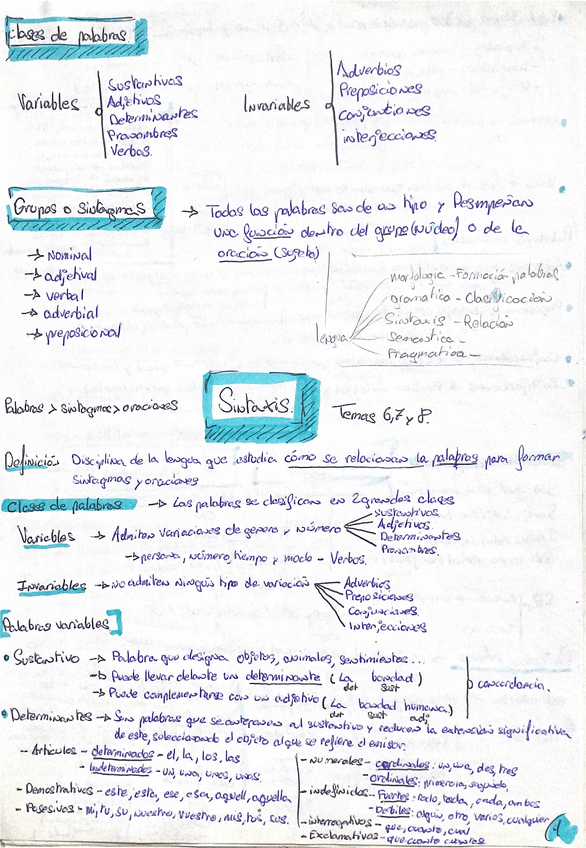 Clases de palabras.
Variables
Sustantivos
Adjetivos
Determinantes
Pronombres
Verbos.
Invariables
Adverbios
Preposiciones
Conjuntiones
interjecciones.
Grupos o sintagmas
→ Todas las palabras son de un tipo y Desempeñan
una función dentro del grupo (Núcleo) o de la
oración (Sujeto)
→ nominal
→ adjetival
→ verbal
→ adverbial
→ preposicional
lengua
morfologia - Formación palabras
gramatica - Clasificación
Sintaxis - Relación
Semantica -
Pragmatica -
Palabras > sintagmas > oraciones
Sintaxis.
Temas 6,7 y 8.
Definición Disciplina de la lengua que estudia cómo se relacionan la palabras para formar
sintagmas y oraciones
Clases de palabras. → Las palabras se clasifican en 2 grandes clases
Variables → Admiten variaciones de genero y número
Sustantivos
Adjetivos
Determinantes
Pronombres.
→ persona, número, tiempo y modo - Verbos.
Invariables → no admiten ningún tipo de variación
Adverbios
Preposiciones
Conjunciones.
Interjecciones
Palabras variables
• Sustantivo → Palabra que designa objetos, animales, sentimientos...
→ Puede llevar delante un determinante (La bondad)
det sust
→ Puede complementarse con un adjetivo (La bondad humana)
det sust adj
concordancia.
• Determinantes → Son palabras que se anteponen al sustantivo y reducen la extensión significativa
de este, seleccionando el objeto al que se refiere el emisor.
- Artículos - determinados - el, la, los, las
- Indeterminados - un, una, unos, unas.
- Demostrativos - este, esta, ese, esa, aquell, aquella
- Posesivos - mi, tu, su, nuestro, vuestro, mis, tus, sus.
- numerales - cardinales: un, una, dos, tres
- ordinales: primero/a, segundo,
- indefinidos - Fuertes: todo, toda, cada, ambos
- Debiles: algún, otro, varios, cualquier
- interrogativos - que, cuanto, cual
- Exclamativos - que cuanto cuantos
1